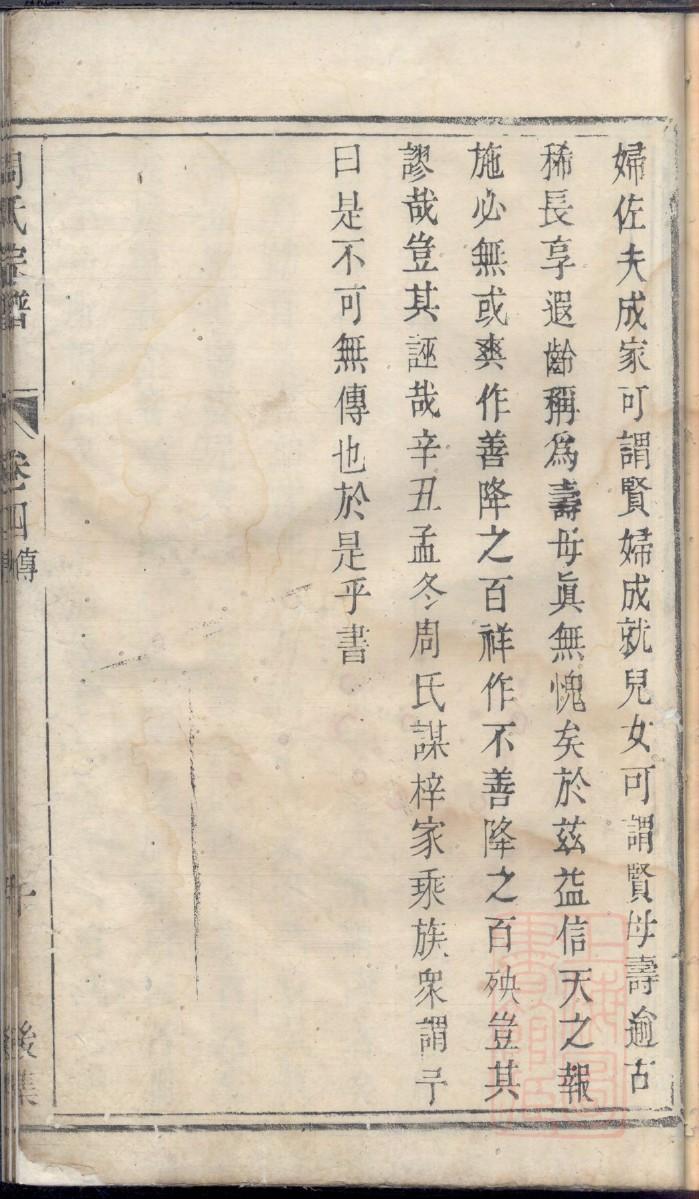 婦佐夫成家可謂賢婦成就兒女可謂賢母壽逾古
稀長享遐齡稱為壽母眞無愧矣於茲益信天之報
施必無或爽作善降之百祥作不善降之百殃豈其
謬哉豈其誣哉辛丑孟冬周氏謀梓家乘族衆謂予
曰是不可無傳也於是乎書
周氏宗譜
卷四 傳
後集